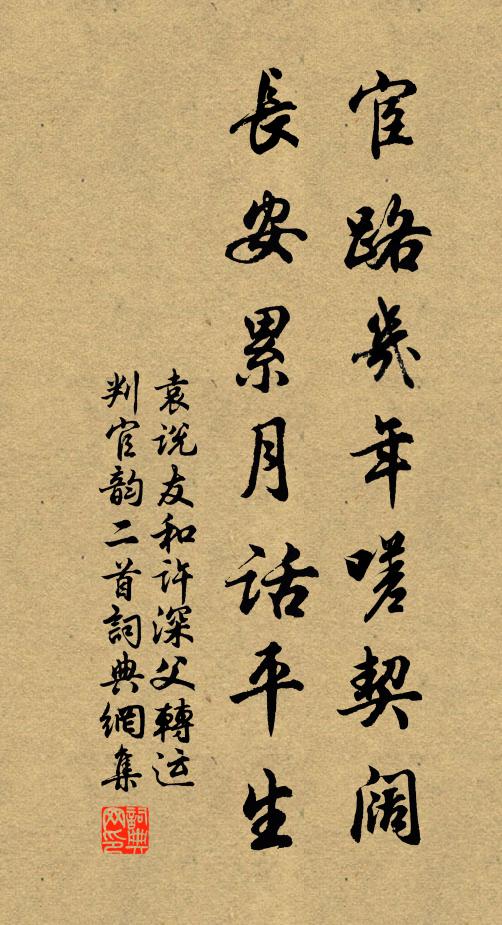 宦路幾年嗟契阔
長安累月话平生
袁说友和许深父轉运
判官韵二首詞典網集
詞典网印